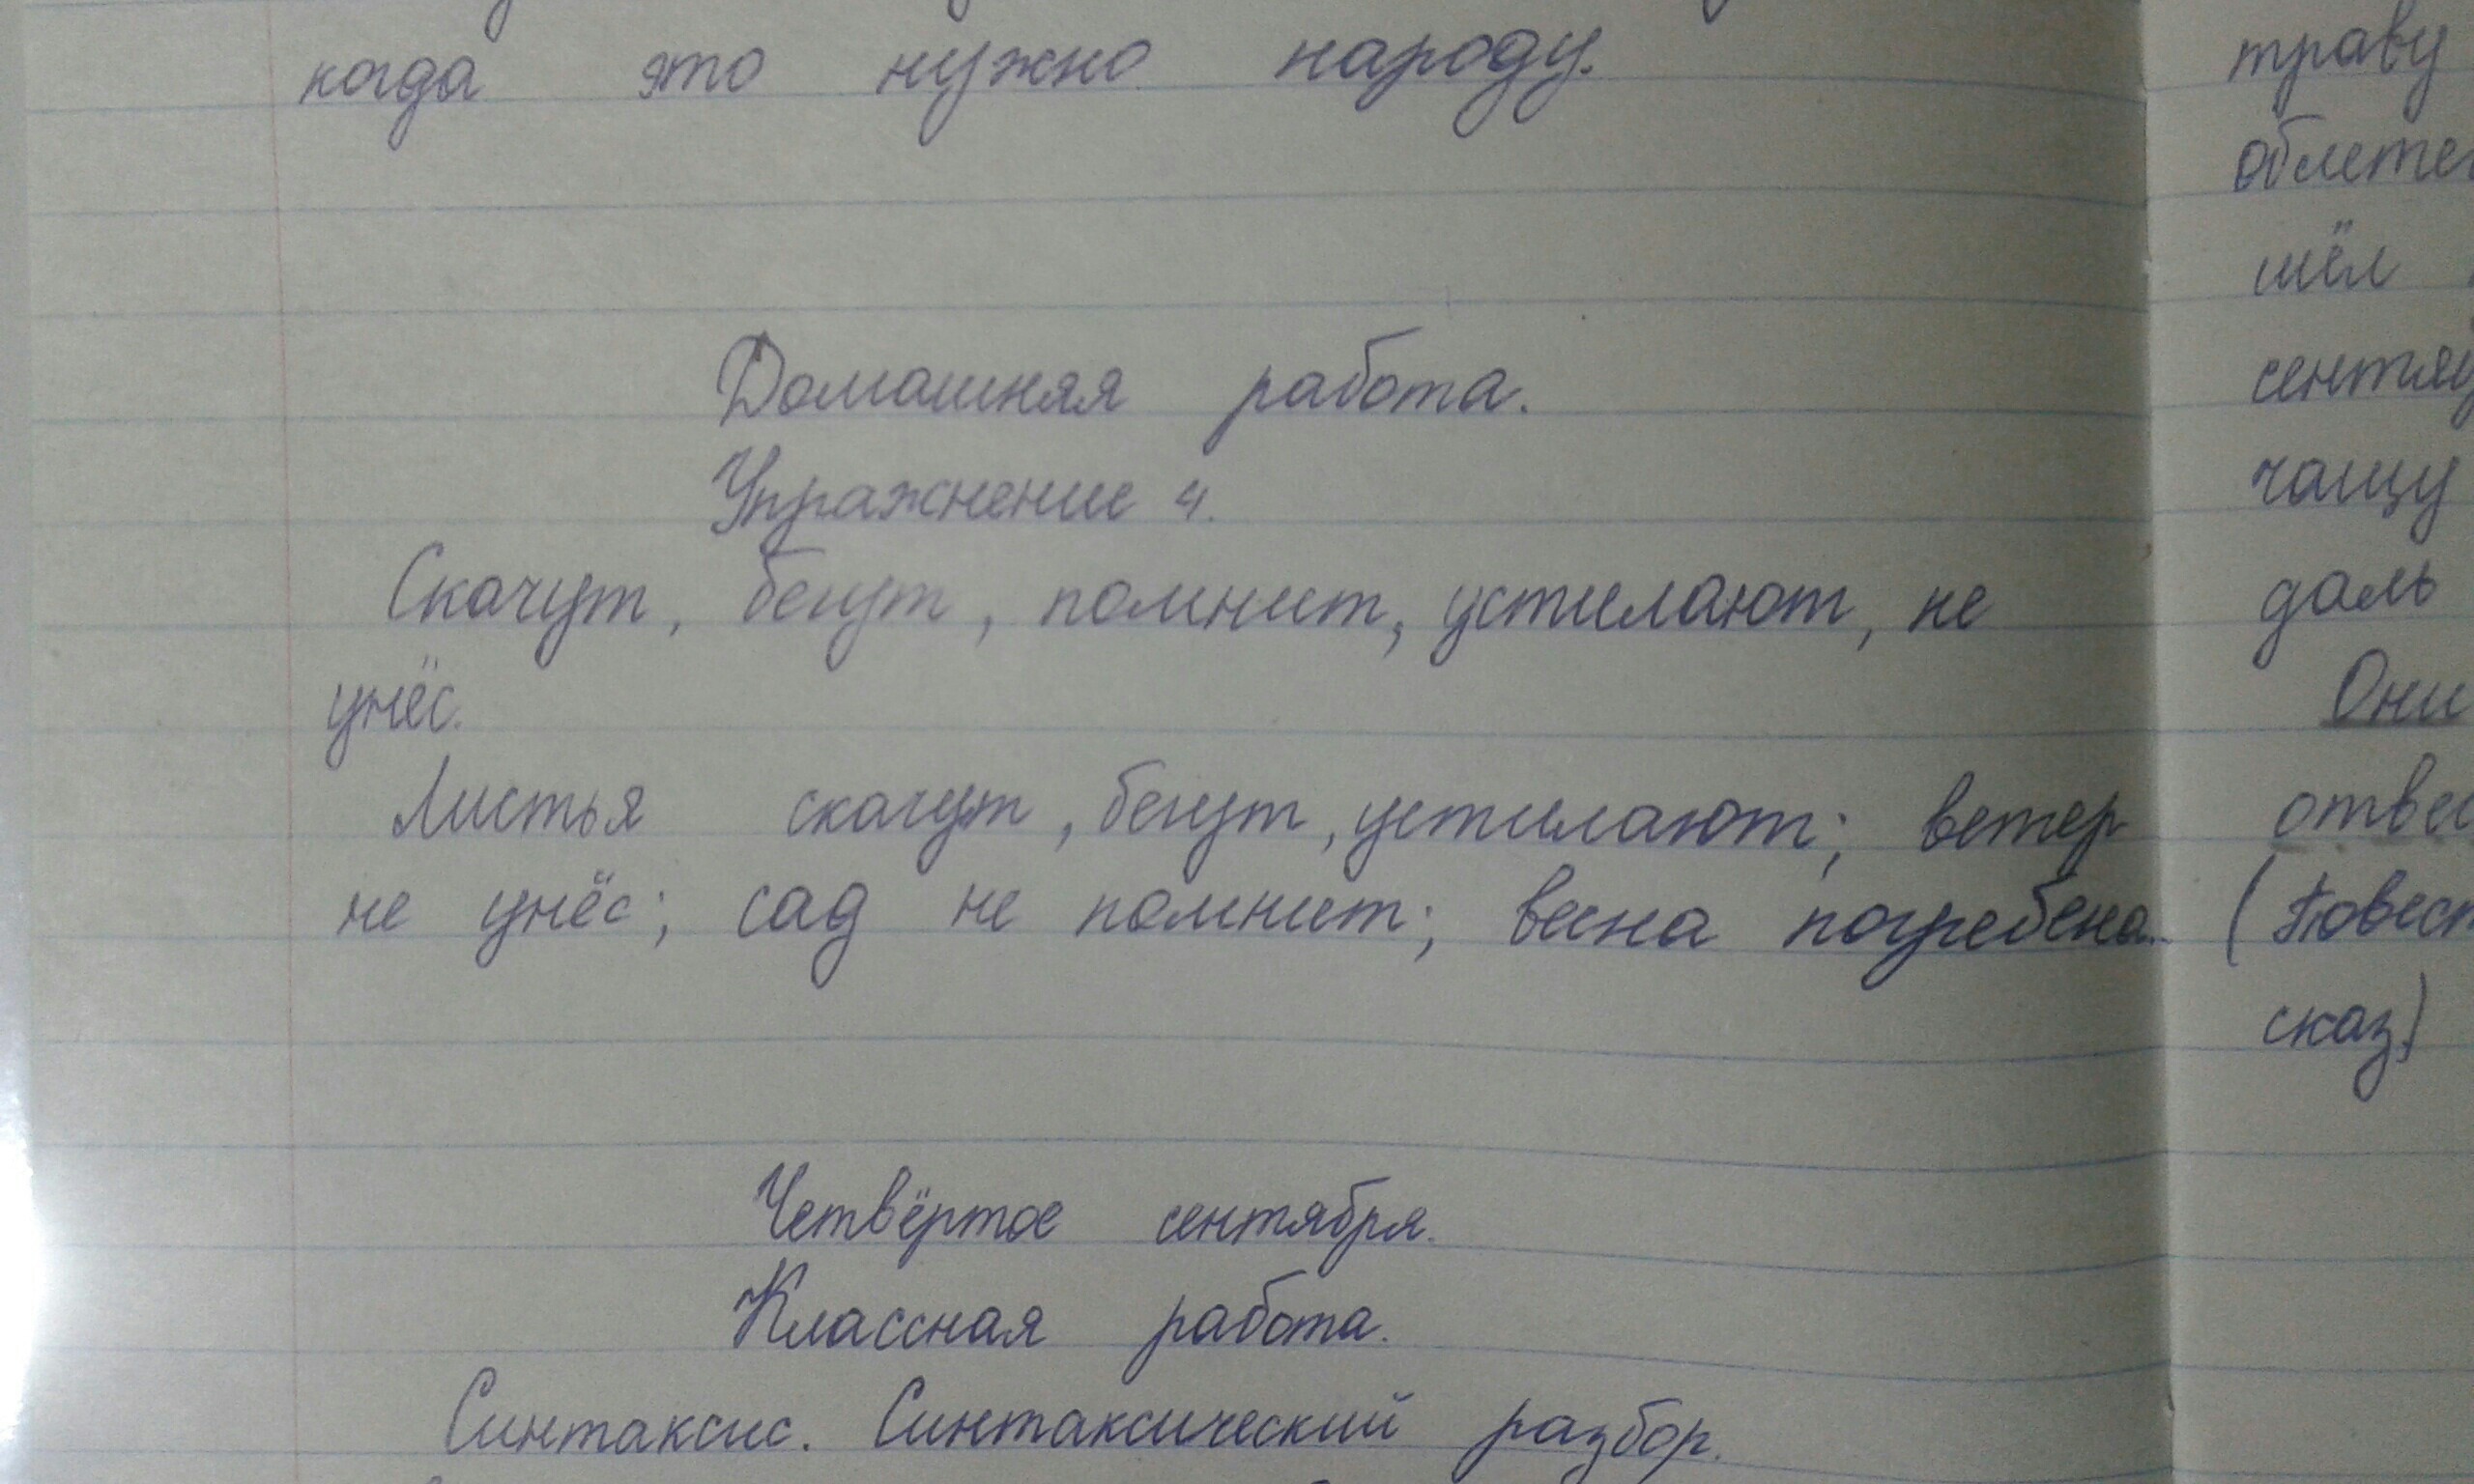 когда это нужно народу.
Домашняя работа.
Упражнение 4.
Скачут, бегут, помнит, устилают, не
унёс.
Листья скачут, бегут, устилают; ветер
не унёс; сад не помнит; весна погребена.
Четвёртое сентября.
Классная работа.
Синтаксис. Синтаксический разбор.
траву
облете
шёл
сентяб
чащу
даль
Они
отвес
(Повест
сказ.)